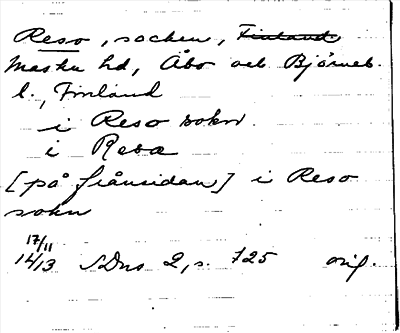 Reso, socken, Finland.
Masku hd, Åbo och Björneb.
l., Finland
i Reso sokn.
i Resa
[på frånsidan] i Reso
sokn
17/11
14/13 SDns 2, s. 725 orig.